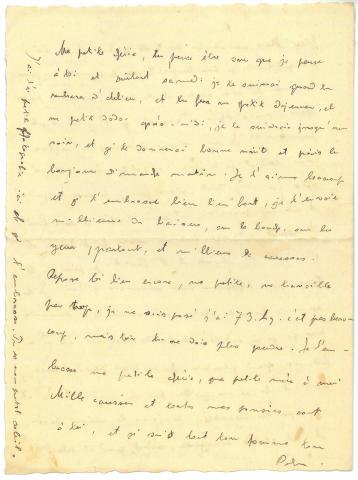 Ma petite chérie, tu peux être sûre que je pense
à toi et surtout samedi je te suivrai quand tu
rentrera d' et tu fera un petit déjeuner, et
un petit dodo après-midi, je te suivrais jusqu'au
soir, et je te donnerai bonne nuit et puis le
bonjour dimanche matin. Je t'aime beaucoup
et je t'embrasse bien bien fort, je t'envoie
milliers de baisers, sur la bouche, sur les
yeux, partout, et milliers de caresses.
Repose toi bien encore, ma petite, ne travaille
pas trop, je me suis pesé j'ai 73 kg. c'est pas beau-
coup, mais toi tu ne dois plus perdre. Je t'em-
brasse ma petite chérie, ma petite à moi
Mille caresses et toutes mes pensées sont
à toi, et je suis tout ton homme ton
J'ai ta petite ici et je t'embrasse. Tu es mon petit soleil.